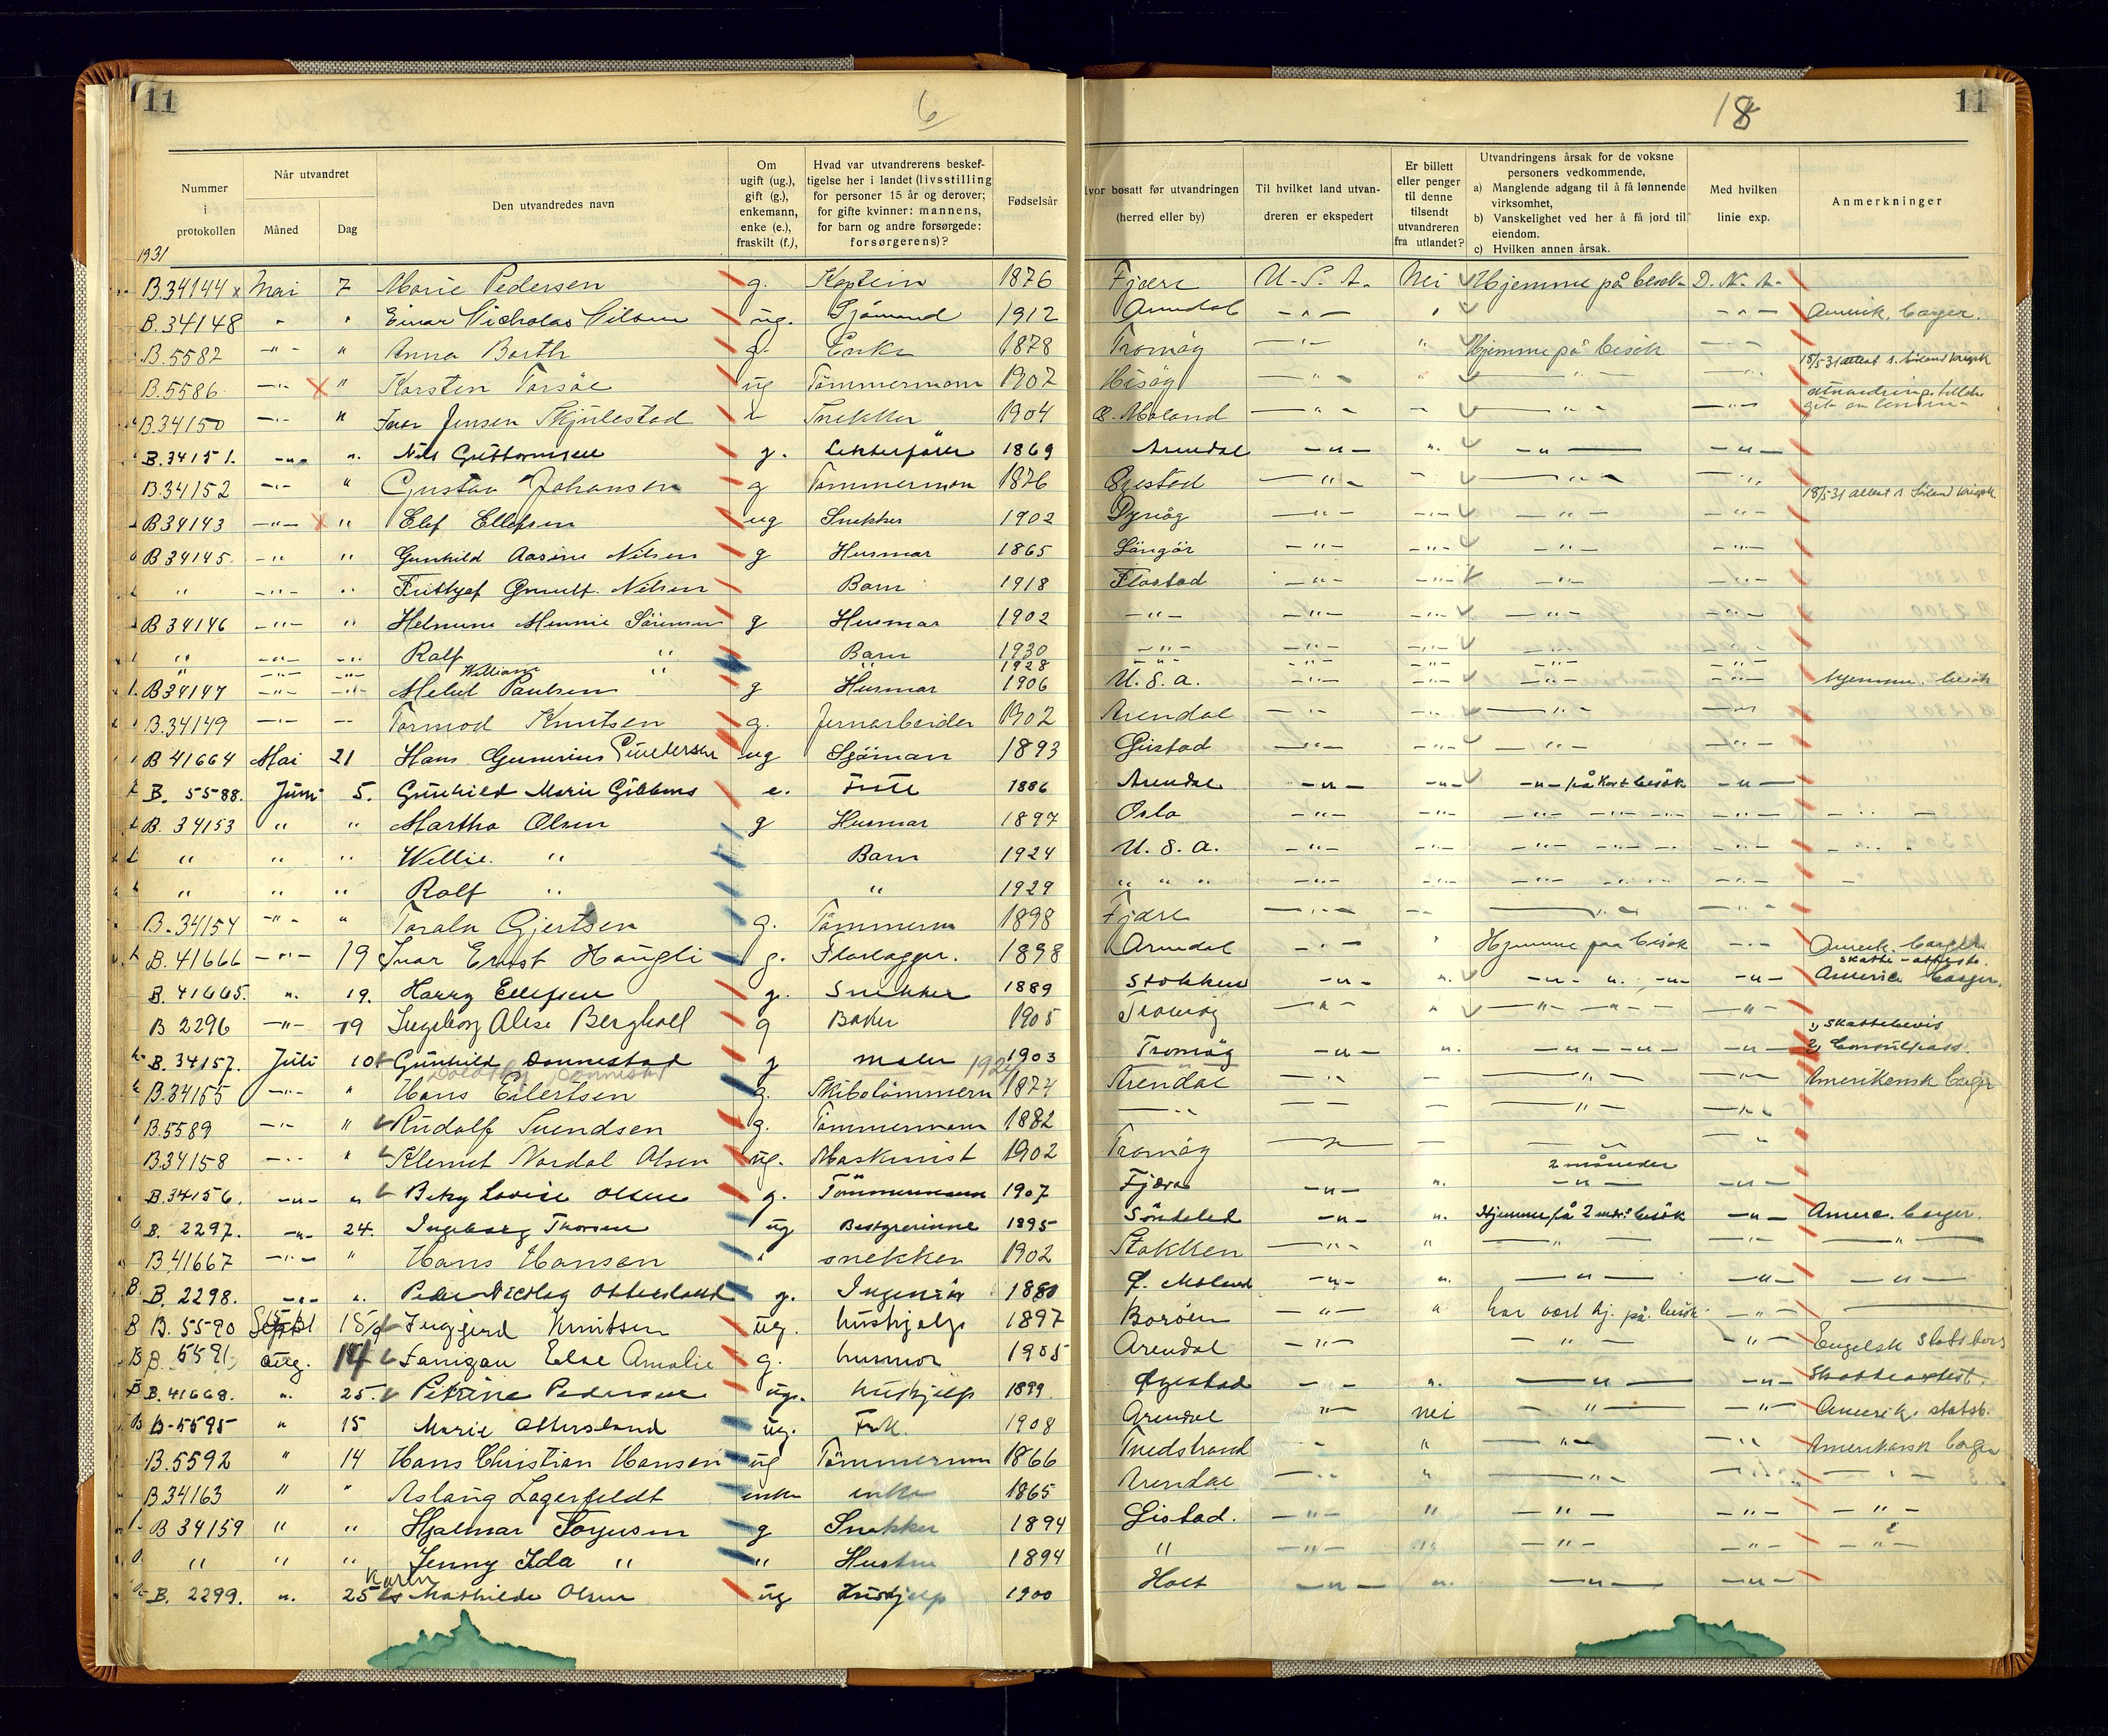 11 6 18 11
Nummer i protokollen
Når utvandret
Måned Dag
Den utvandredes navn
Om ugift (ug.), gift (g.), enkemann, enke (e.), fraskilt (f.),
Hvad var utvandrerens beskef-
tigelse her i landet (livsstilling
for personer 15 år og derover;
for gifte kvinner: mannens,
for barn og andre forsørgede:
forsørgerens)?
Fødselsår
vor bosatt før utvandringen
(herred eller by)
Til hvilket land utvan-
dreren er ekspedert
Er billett eller penger til denne tilsendt utvandreren fra utlandet?
Utvandringens årsak for de voksne
personers vedkommende,
a) Manglende adgang til å få lønnende
virksomhet,
b) Vanskelighet ved her å få jord til
eiendom.
c) Hvilken annen årsak.
Med hvilken
linie exp.
Anmerkninger
1931
B.34144 x Mai 7 Marie Pedersen g. Kaptein 1876 Fjære U.S.A. Nei Hjemme på besøk D.N.A.
B.34148 " " Einar Nicholas Nilsen ug. Sjømand 1912 Arendal -"- " -"- Amerik. borger.
B.5582 -"- " Anna Barth Enke 1878 Tromøy -"- " Hjemme på besøk -"-
B.5586 -"- x " Karsten Torsøe ug Tømmermann 1902 Hisøy -"- " -"- -"-
B.34150 -"- " Ivar Jensen Skjulestad Snekker 1904 Ø. Moland -"- -"- -"-
B.34151. -"- ". Nils Guttormsen g. 1869 Arendal -"- ". -"- -"-
B.34152 -"- " Gustav Johansen g Tømmermann 1876 Øyestad -"- -"- -"-
B34143 -"- x " Elef Ellefsen ug Snekker 1902 Dypvåg -"- -"- -"- -"-
B34145. -"- " Gunhild Aasine Nilsen g Husmor 1865 -"- -"- -"- -"-
" -"- " Nilsen Barn 1918 Flostad -"- -"- -"- -"-
B34146 -"- " Minnie Sörensen g Husmor 1902 -"- -"- -"- -"- -"-
" -"- -"- Rolf " Barn 1930 -"- -"- -"- -"- -"-
" -"- -"- William " " 1928 -"- -"- -"- -"- -"-
B34147 -"- -"- Paulsen g Husmor 1906 U.S.A. -"- -"- -"- -"- hjemme. besök
B.34149 -"- -"- Tormod Knutsen g. Jernarbeider 1902 Arendal -"- -"- -"- -"-
B 41664 Mai 21 Hans ug Sjöman 1893 -"- -"- -"- -"-
B. 5588. Juni 5. Gunhild Marie Gibbons e. Frue 1886 Arendal -"- -"- -"- på kort besök -"-
B. 34153 " " Martha Olsen g Husmor 1897 Oslo -"- -"- -"- -"-
" " " Willie. " Barn 1924 U.S.A. -"- -"- -"- -"-
" " " Rolf " " 1929 " " " -"- -"- -"- -"-
B.34154 -"- " Gjertsen g. Tømmerm 1898 Fjære -"- -"- -"- -"-
B. 41666 -"- 19 Ivar Ernst Haugli g. 1898 Arendal -"- " Hjemme paa besøk -"- Amerik. borger
B. 41665. ". 19. Harry Ellefsen g. Snekker 1889 Stokken -"- ". -"- -"- Americ borger.
B 2296 -"- 19 Ingeborg Alise Berghall g Baker 1905 Tromøy -"- " -"- -"-
B. 34157. Juli 10 Gunhild Dannestad g maler 1903 Tromøy -"- ". -"- -"- 1) Skattebevis 2) Consulpass.
B.34155 -"- " Hans Eilertsen g. Skibstømmerm 1874 Arendal -"- -"- -"- Amerikansk borger
B.5589 -"- " Rudolf Svendsen g. Tømmermann 1882 -"- -"- -"- -"-
B.34158 -"- " Klemet Nordal Olsen ug. Maskinist 1902 Tromøy -"- -"- 2 måneder -"-
B.34156. -"- " Betzy Lovise Olsen g. Tömmermann 1907 Fjære -"- ". -"- -"-
B. 2297. -"- 24. Ingeborg Thorsen ug Bestyrerinne 1895 Söndeled -"- ". Hjemme på 2 mdr. besök -"- Americ. borger.
B.41667 -"- " Hans Hansen " snekker 1902 Stokken -"- " -"- -"- -"-
B. 2298. -"- ". Peder Nicolay Ottersland g. Ingeniør 1880 Ø. Moland -"- ". -"- -"- -"-
B. 5590 Sept 15/9 Inggjerd Knutsen ug. hushjelp 1897 Borøen -"- " har vært hj. på besøk -"-
B. 5591. aug. 14 Fanigan Else Amalie g. husmor 1905 Arendal -"- -"- -"- Engelsk statsborg
B. 41668. ". 25. Petrine Pedersen ug. hushjelp 1899 Øyestad -"- ". -"- -"- Skatteattest.
B-5595 " 15 Marie Ottersland ug. Frk. 1908 Arendal -"- nei -"- -"- Amerik. statsb.
B.5592 " 14 Hans Christian Hansen ug Tømmermann 1866 Tvedestrand " " -"- -"- Amerikansk borger
B.34163 " " Aslaug Lagerfeldt enke enke 1865 Arendal -"- " -"- -"- -"-
B 34159 " " Hjalmar Torjusen g Snekker 1894 -"- " -"- -"- -"-
" " " Jenny Ida " " Hustru 1894 " -"- " -"- -"- -"-
B. 2299. ". 25 Karen Mathilde Olsen ug Hushjelp 1900 Holt -"- ". -"- -"-